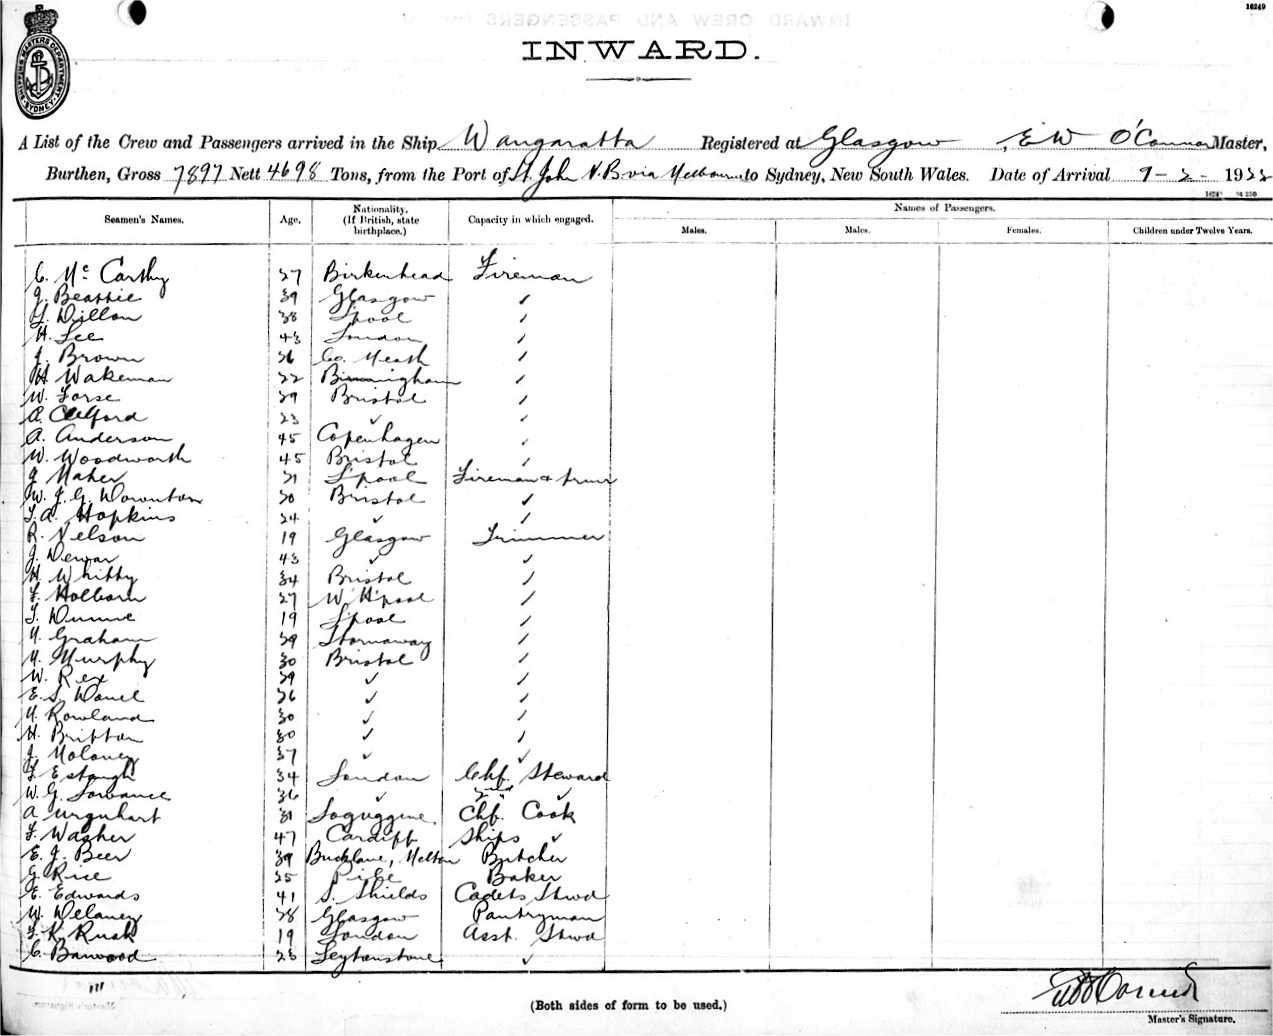 16249
INWARD.
SHIPPING MASTERS DEPARTMENT SYDNEY
A List of the Crew and Passengers arrived in the Ship Wangaratta Registered at Glasgow, E W O'Connor Master,
Burthen, Gross 7897 Nett 4698 Tons, from the Port of St. John N.B via Melbourne to Sydney, New South Wales. Date of Arrival 9-2-1922
Names of Passengers.
Seamen's Names. Age. Nationality. (If British, state birthplace.) Capacity in which engaged. Males. Males. Females. Children under Twelve Years.
C. McCarthy 27 Birkenhead Fireman
J. Beattie 39 Glasgow ✓
Dillon 38 L'pool ✓
H. Lee 43 London ✓
J. Brown 26 Co. Meath ✓
H. Wakeman 22 Birmingham ✓
W. Forse 29 Bristol ✓
A. Clifford 23 ✓ ✓
A. Anderson 45 Copenhagen ✓
W. Woodworth 45 Bristol ✓
J Maher 21 L'pool Fireman & trimr
W. J. G. Downton 20 Bristol ✓
F. A. Hopkins 24 ✓ ✓
R. Nelson 19 Glasgow Trimmer
J. Dewar 43 ✓ ✓
H. Whitby 34 Bristol ✓
F. Holborn 27 W H'pool ✓
T. Dunne 19 L'pool ✓
Graham 29 Stornaway ✓
M. Murphy 30 Bristol ✓
W. Rex 29 ✓ ✓
E. S. 26 ✓ ✓
Rowland 30 ✓ ✓
H. Britton 30 ✓ ✓
J. Moloney 37 ✓ ✓
34 London Chf. Steward
W. G. 36 ✓ 2nd ✓
A Urquhart 31 Chf. Cook
F. Washer 47 Cardiff Ships ✓
E. J. Beer 39 Butcher
G. Rice 25 Baker
E. Edwards 41 S. Shields Cadets Stwd
W. Delaney 28 Glasgow Pantryman
F. K. Rusk 19 London Asst. Stwd
C. Barwood 25 Leytonstone ✓
(Both sides of form to be used.)
Master's Signature.